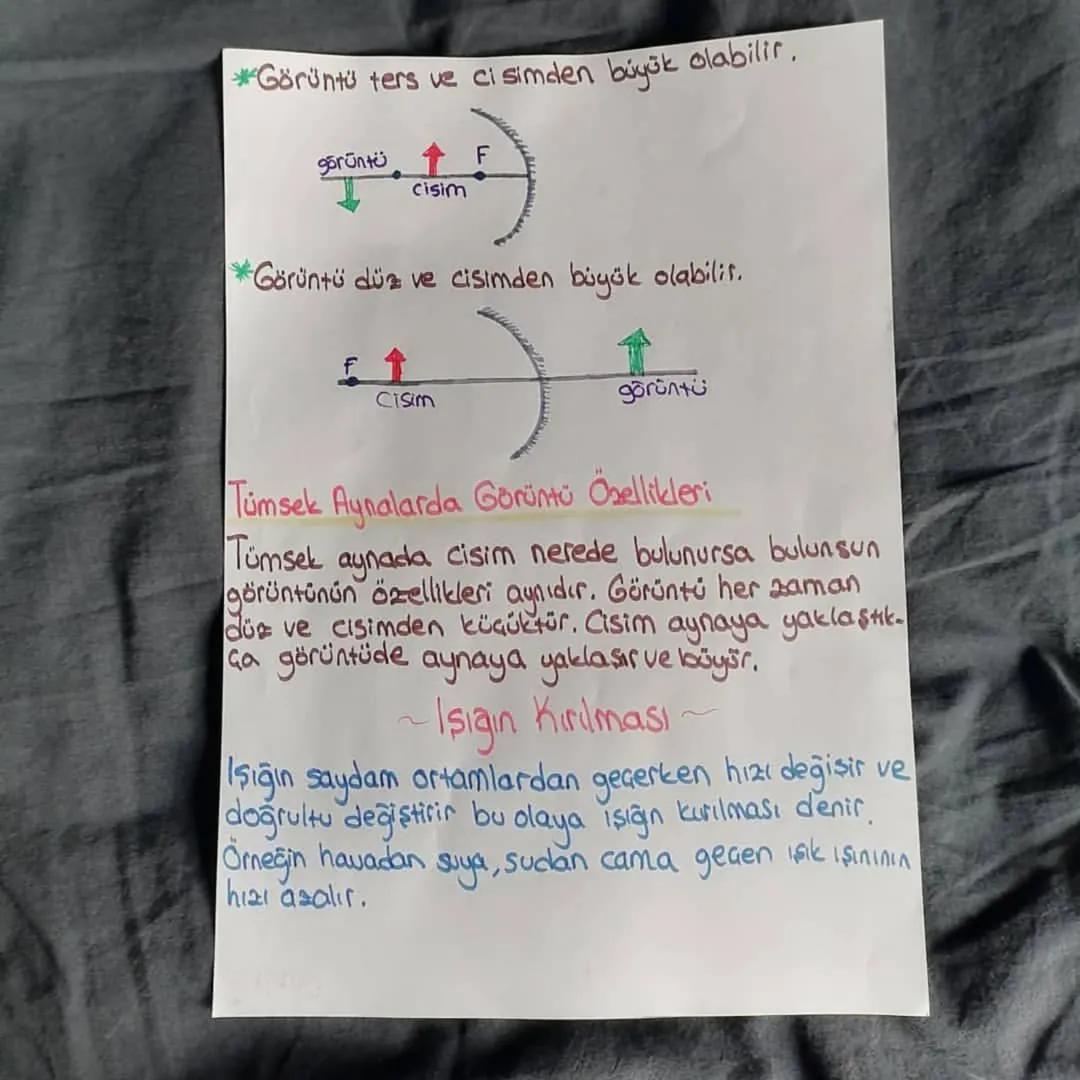 *Görüntü ters ve cisimden büyük olabilir.
görüntü F
cisim
*Görüntü düz ve cisimden büyük olabilir.
F
Cisim görüntü
Tümsek Aynalarda Görüntü Özellikleri
Tümsek aynada cisim nerede bulunursa bulunsun
görüntünün özellikleri aynıdır. Görüntü her zaman
düz ve cisimden küçüktür. Cisim aynaya yaklaştık-
ça görüntüde aynaya yaklaşır ve büyür.
~Işığın Kırılması~
Işığın saydam ortamlardan geçerken hızı değişir ve
doğrultu değiştirir bu olaya ışığın kırılması denir.
Örneğin havadan suya, sudan cama geçen ışık ışınının
hızı azalır.